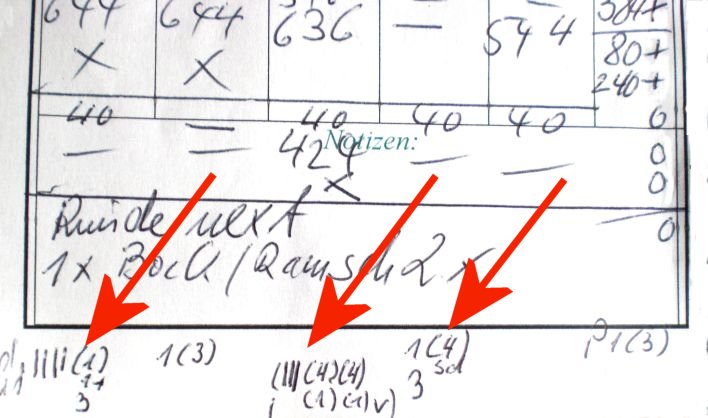 644 644 636 — 544 384+
X X 80+
240+
40 — 40 40 40 0
Notizen:
— — 424 — — 0
X 0
Runde next 0
1x Bock/Ramsch 2x
IIII(1) 1(3) (III(4)(4) 1(4) 1(3)
1+ (1)(1)v) 3
3